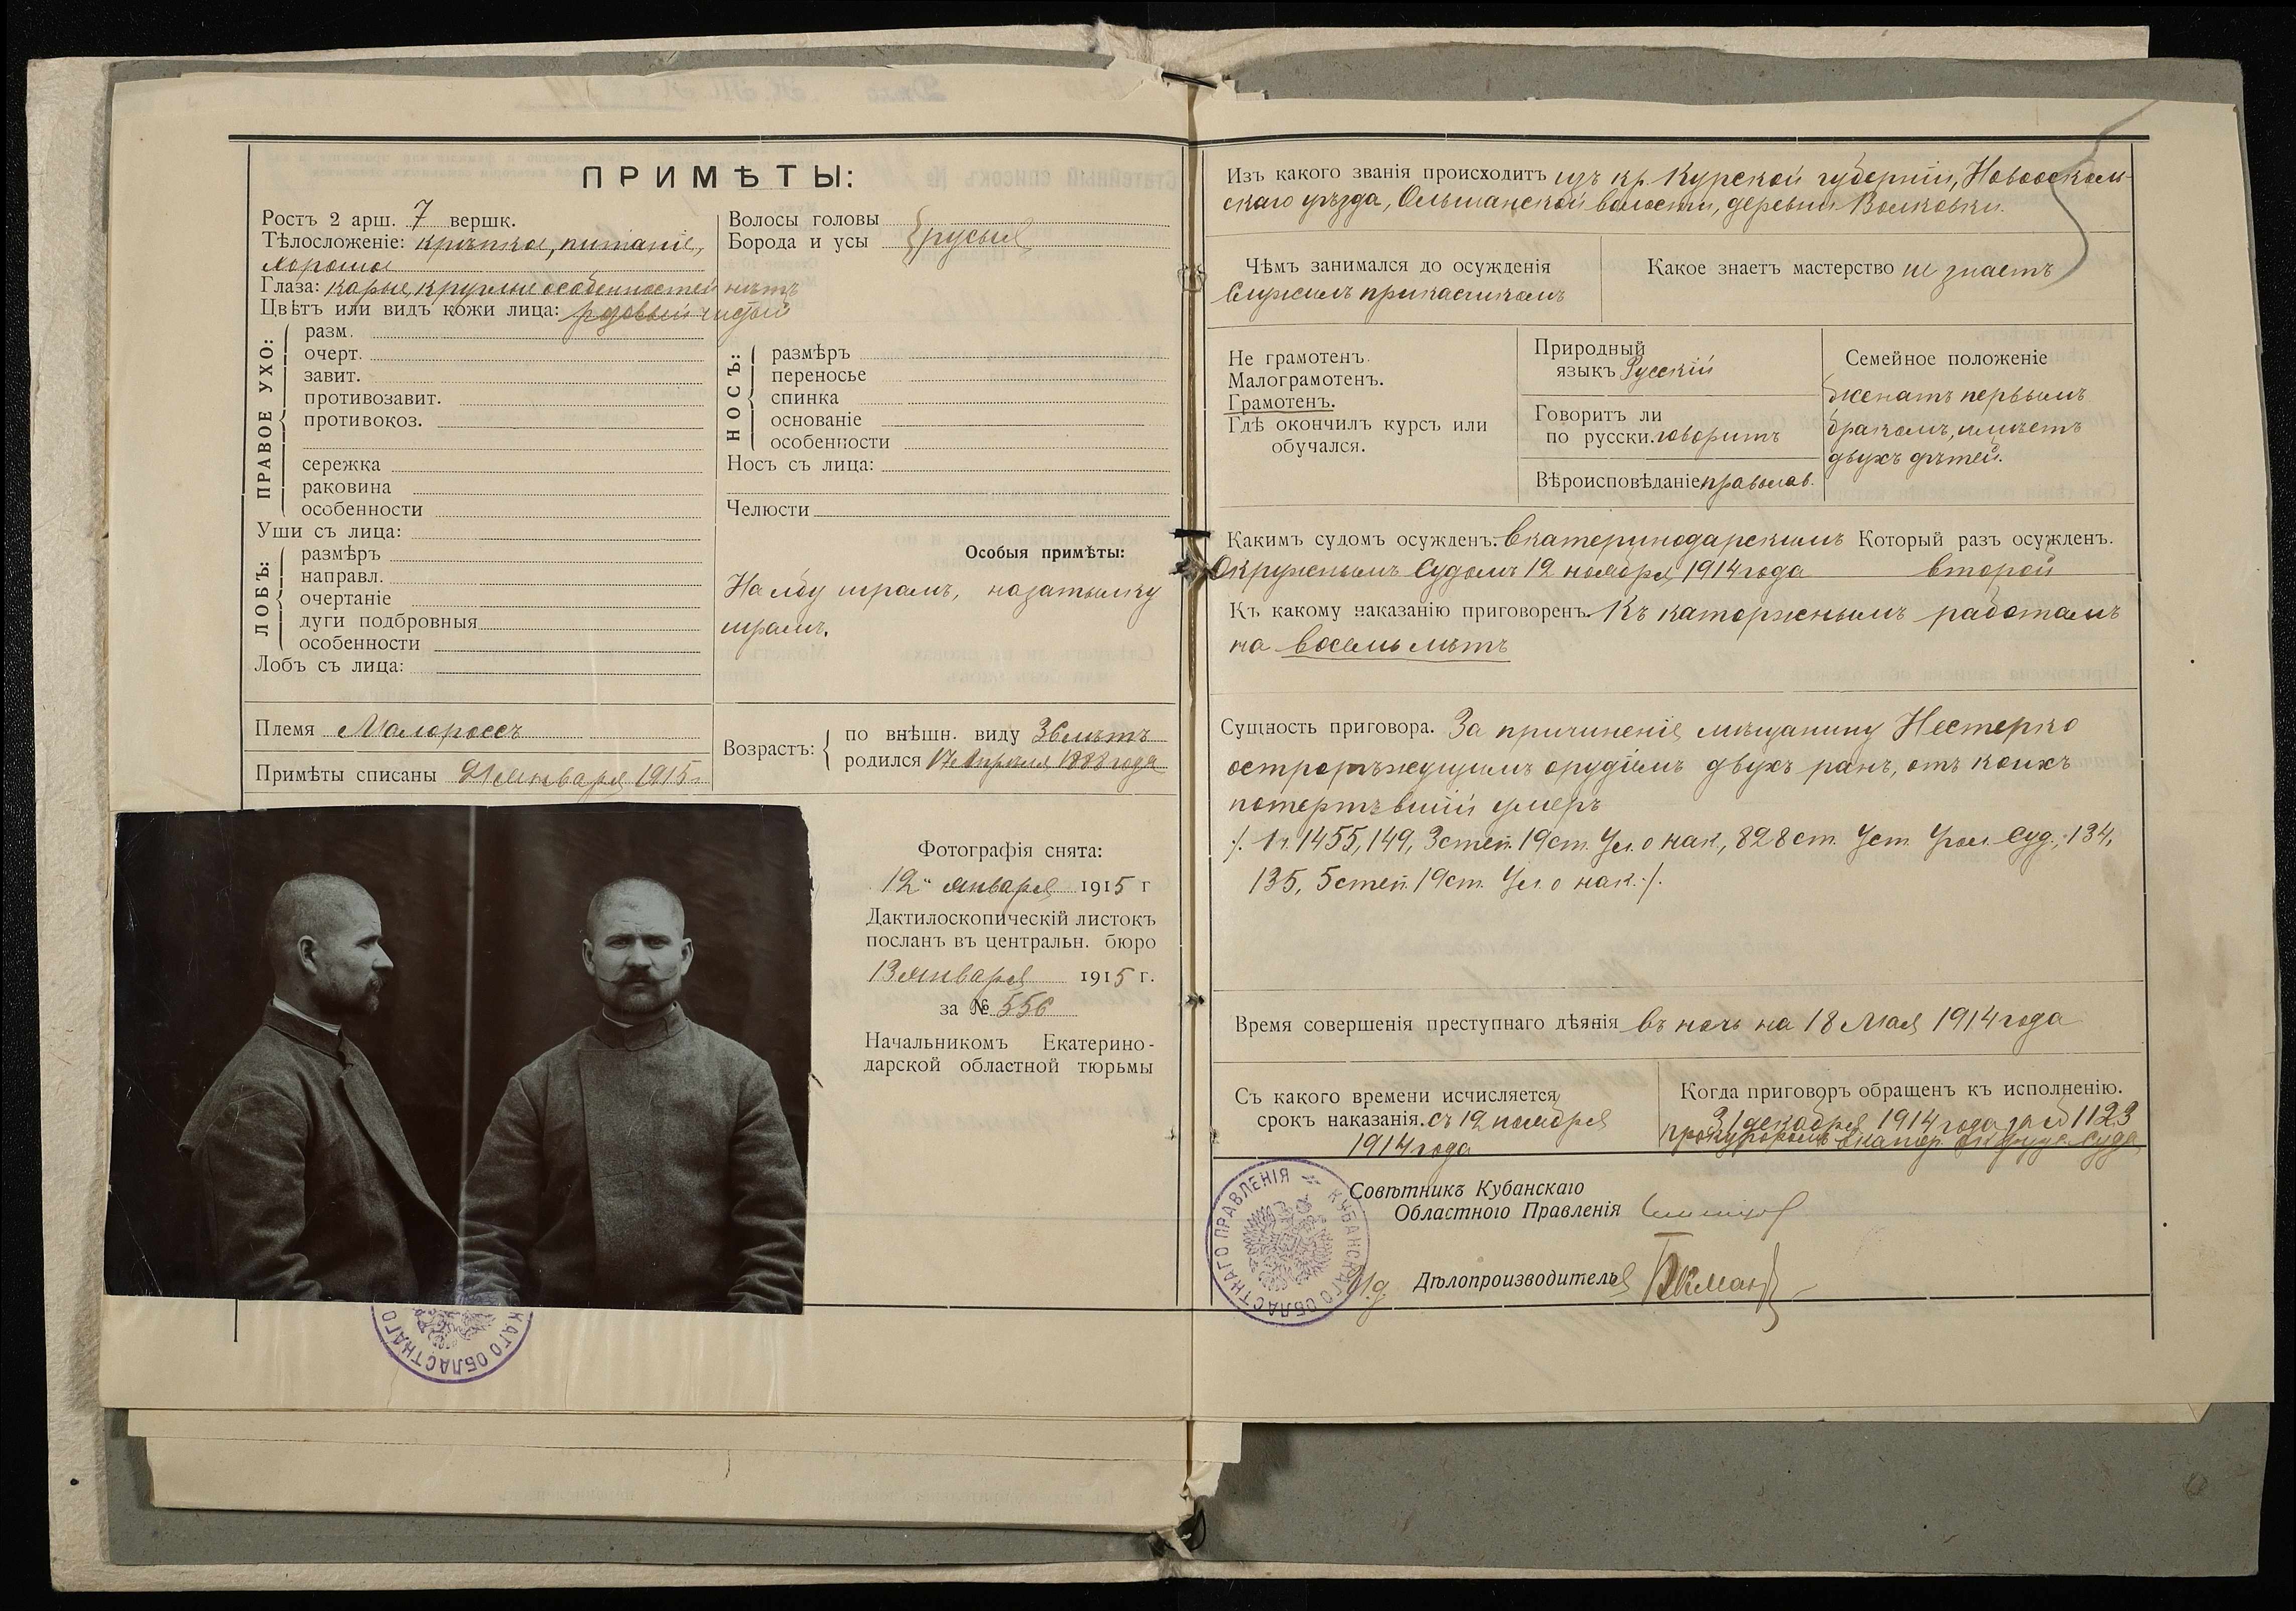 ПРИМѢТЫ:
Ростъ 2 арш. 7 вершк.
Тѣлосложеніе: крѣпкое, питаніе,
хорошое
Глаза: карые, круглые особенностей нѣтъ
Цвѣтъ или видъ кожи лица: розовый чистый
Волосы головы
Борода и усы } русые
ПРАВОЕ УХО:
разм.
очерт.
завит.
противозавит.
противокоз.
сережка
раковина
особенности
Уши съ лица:
ЛОБЪ:
размѣръ
направл.
очертаніе
дуги подбровныя
особенности
Лобъ съ лица:
НОСЪ:
размѣръ
переносье
спинка
основаніе
особенности
Носъ съ лица:
Челюсти
Особыя примѣты:
На лбу шрамъ, на затылку
шрамъ.
Племя Малороссъ
Примѣты списаны 21 января 1915 г.
Возрастъ:
по внѣшн. виду 36 лѣтъ
родился 17 Апрѣля 1888 года
Фотографія снята:
12 января 1915 г
Дактилоскопическій листокъ
посланъ въ центральн. бюро
13 января 1915 г.
за № 556
Начальникомъ Екатерино-
дарской областной тюрьмы
КАГО ОБЛАСТНАГО
Изъ какого званія происходитъ изъ кр. Курской губерніи, Новооскол-
скаго уѣзда, Ольшанской волости, деревни Волковки.
Чѣмъ занимался до осужденія
Служилъ прикасчикомъ
Какое знаетъ мастерство не знаетъ
Не грамотенъ.
Малограмотенъ.
Грамотенъ.
Гдѣ окончилъ курсъ или
обучался.
Природный
языкъ Русскій
Говоритъ ли
по русски. говоритъ
Вѣроисповѣданіе православ.
Семейное положеніе
женатъ первымъ
бракомъ, имѣетъ
двухъ дѣтей.
Какимъ судомъ осужденъ. Екатеринодарскимъ
Окружнымъ Судомъ 12 ноября 1914 года
Который разъ осужденъ.
второй
Къ какому наказанію приговоренъ. Къ каторжнымъ работамъ
на восемь лѣтъ
Сущность приговора. За причиненіе мѣщанину Нестерко
острорѣжущимъ орудіемъ двухъ ранъ, отъ коихъ
потерпѣвшій умеръ
/. 1 ч. 1455, 149, 3 степ. 19 ст. Ул. о нак., 828 ст. Уст. Угол. Суд., 134,
135, 5 степ. 19 ст. Ул. о нак. /.
Время совершенія преступнаго дѣянія въ ночь на 18 Мая 1914 года
Съ какого времени исчисляется
срокъ наказанія. съ 12 ноября
1914 года
Когда приговоръ обращенъ къ исполненію.
31 декабря 1914 года за № 1123
прокуроромъ Екатер. Окруж. Суда
Совѣтникъ Кубанскаго
Областного Правленія
И.д. Дѣлопроизводителя
КУБАНСКАГО ОБЛАСТНАГО ПРАВЛЕНІЯ